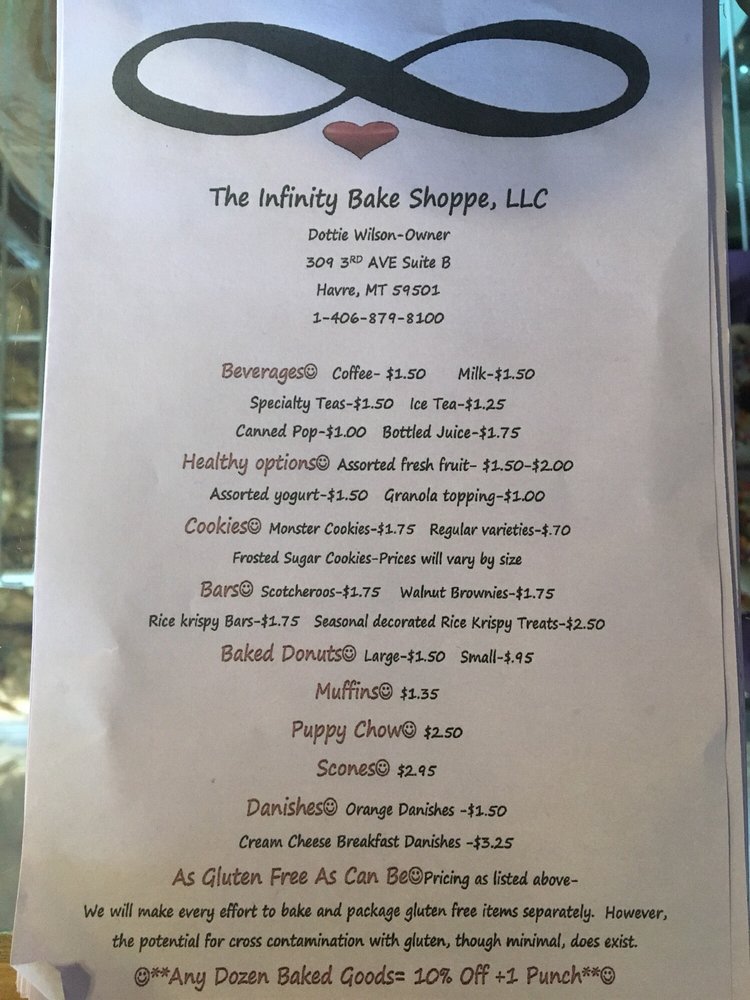 The Infinity Bake Shoppe, LLC
Dottie Wilson-Owner
309 3RD AVE Suite B
Havre, MT 59501
1-406-879-8100
Beverages☺ Coffee- $1.50 Milk-$1.50
Specialty Teas-$1.50 Ice Tea-$1.25
Canned Pop-$1.00 Bottled Juice-$1.75
Healthy options☺ Assorted fresh fruit- $1.50-$2.00
Assorted yogurt-$1.50 Granola topping-$1.00
Cookies☺ Monster Cookies-$1.75 Regular varieties-$.70
Frosted Sugar Cookies-Prices will vary by size
Bars☺ Scotcheroos-$1.75 Walnut Brownies-$1.75
Rice krispy Bars-$1.75 Seasonal decorated Rice Krispy Treats-$2.50
Baked Donuts☺ Large-$1.50 Small-$.95
Muffins☺ $1.35
Puppy Chow☺ $2.50
Scones☺ $2.95
Danishes☺ Orange Danishes -$1.50
Cream Cheese Breakfast Danishes -$3.25
As Gluten Free As Can Be☺Pricing as listed above-
We will make every effort to bake and package gluten free items separately. However,
the potential for cross contamination with gluten, though minimal, does exist.
☺**Any Dozen Baked Goods= 10% Off +1 Punch**☺